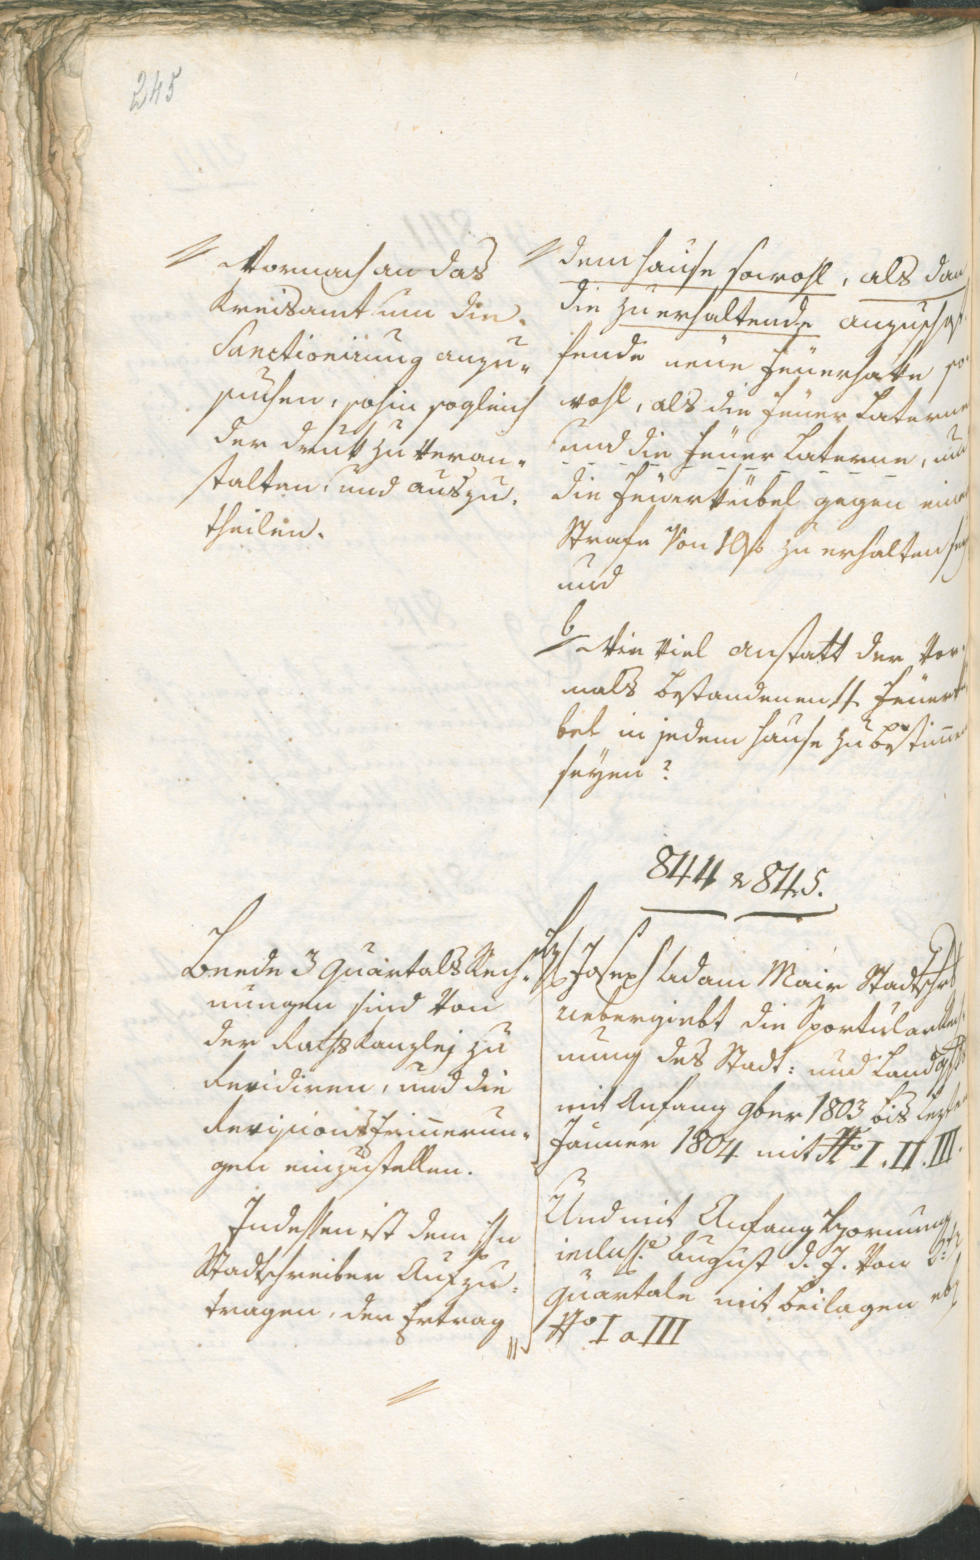 245
Wornach an das
Kreisamt um die
Sanctionirung anzu„
suchen, sohin sogleich
der druk zu veran„
stalten, und auszu„
theilen.
dem Hause sowohl, als dan
die zu erhaltende anzuschaf
fende neüe Feüerhäke so
wohl, als die Feüer Laterne
und die Feüer Laterne, und
die Feüerkübel gegen eine
Strafe von 10 f zu erhalten
und
b Wie viel anstatt der vor„
mals bestandenen Feüerkü
bel in jedem Hause zu bestimmen
seyen?
844 & 845.
Beede 3 Quartals Rech„
nungen sind von
der Raths Kanzlej zu
Revidiren, und die
Revisions Erinnerun„
gen einzustellen.
Indessen ist dem Hn
Stadtschreiber Aufzu„
tragen, den Ertrag
Joseph Adam Mair Stadtschrbr
uebergiebt die Sportular Rech
nung des Stadt: und Landgchts
mit Anfang 9ber 1803 bis lezten
Jänner 1804 mit No I. II. III.
Und mit Anfang Hornung
inclus. August d. J. von 2
Quartale mit beilagen
No I a III